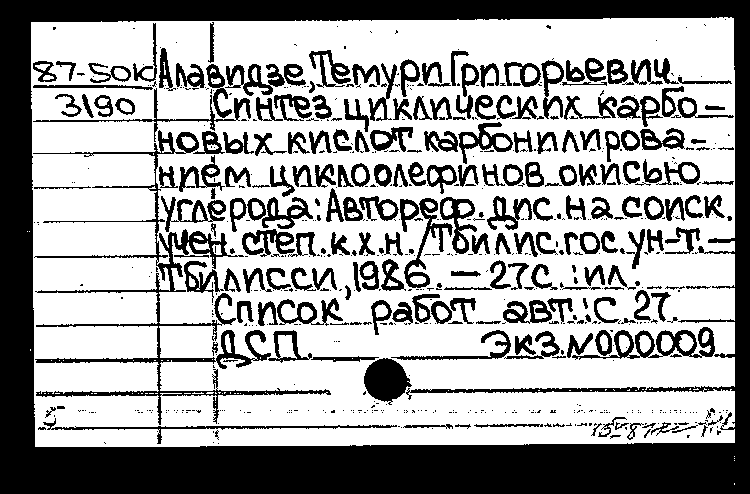 87-50К Алавидзе, Темури Григорьевич.
3190 Синтез циклических карбо-
новых кислот карбонилирова-
нием циклоолефинов окисью
углерода: Автореф. дис. на соиск.
учен. степ. к.х.н. / Тбилис. гос. ун-т. —
Тбилисси, 1986. — 27с. : ил.
Список работ авт.: с. 27.
ДСП. Экз. N000009
5